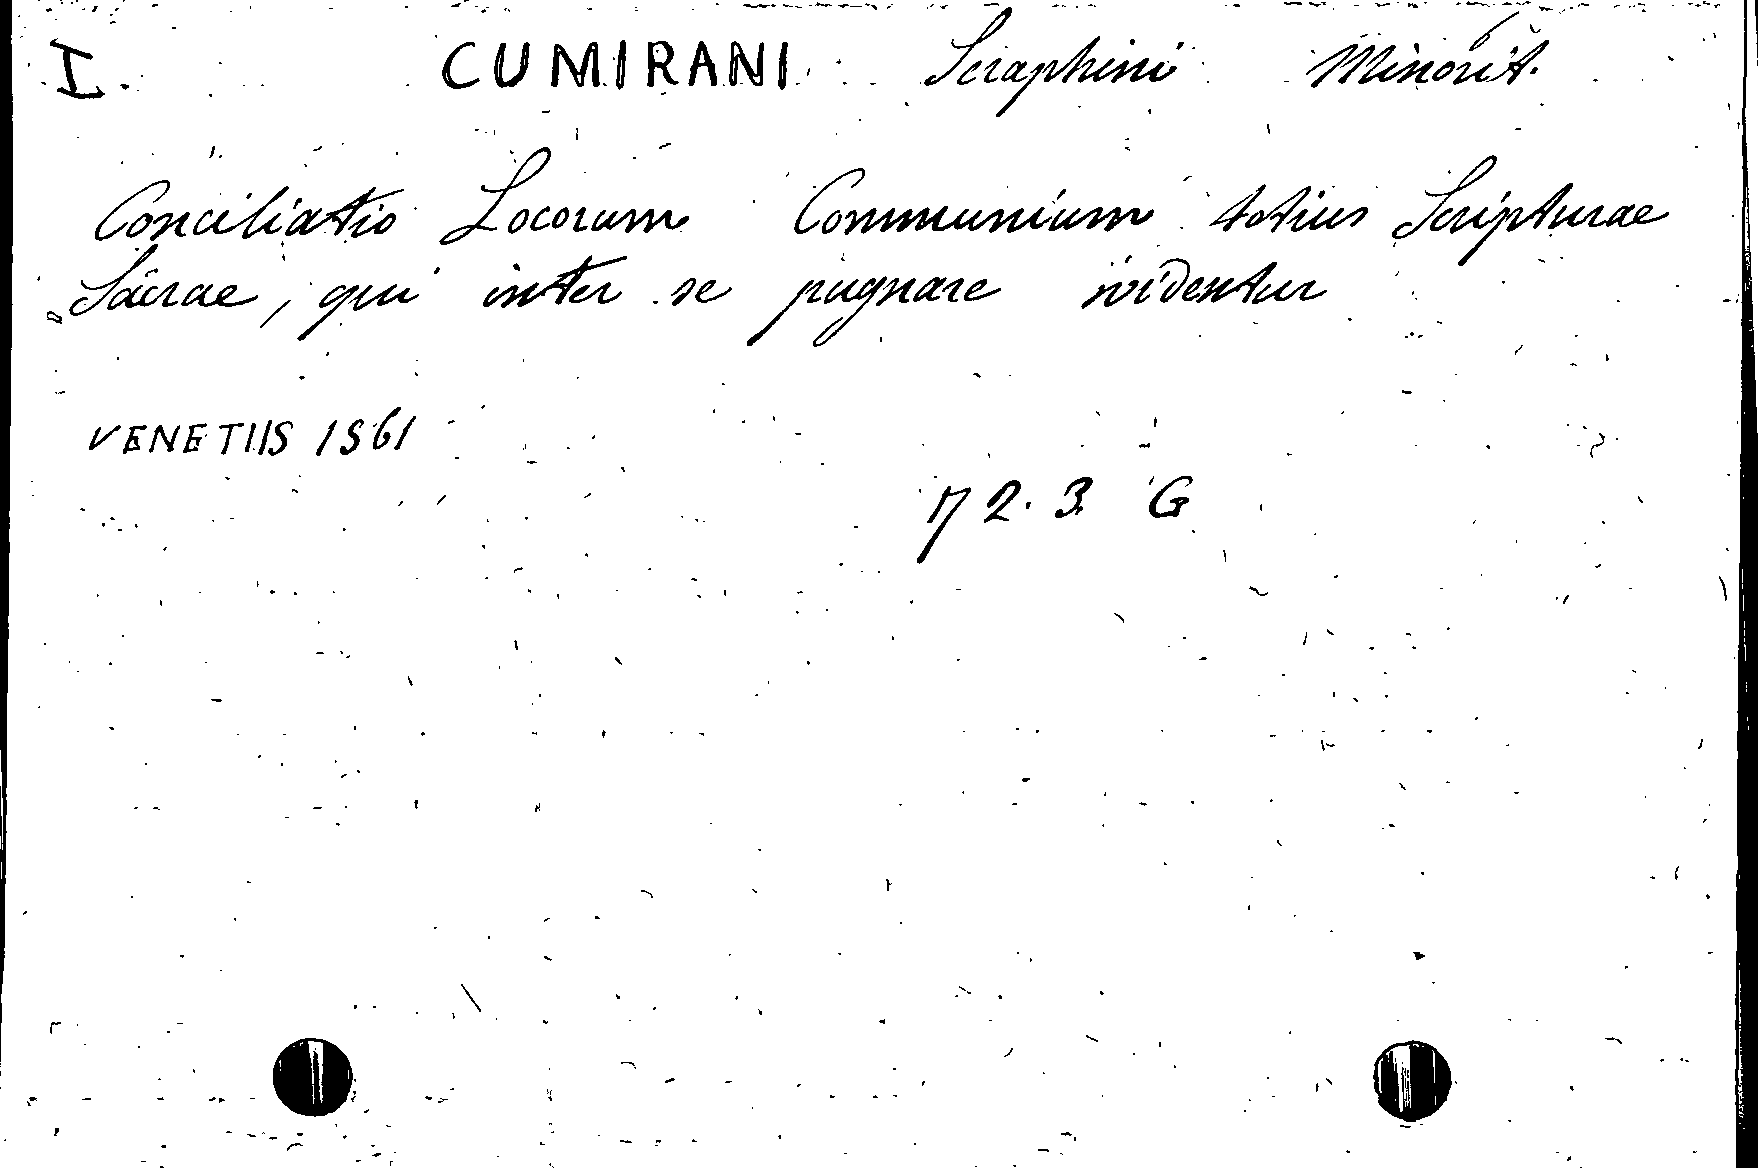 I. CUMIRANI Seraphini Minorit.
Conciliatio Locorum Communium totius Scripturae
Sacrae, qui inter se pugnare videntur
VENETIIS 1561
72.3 G